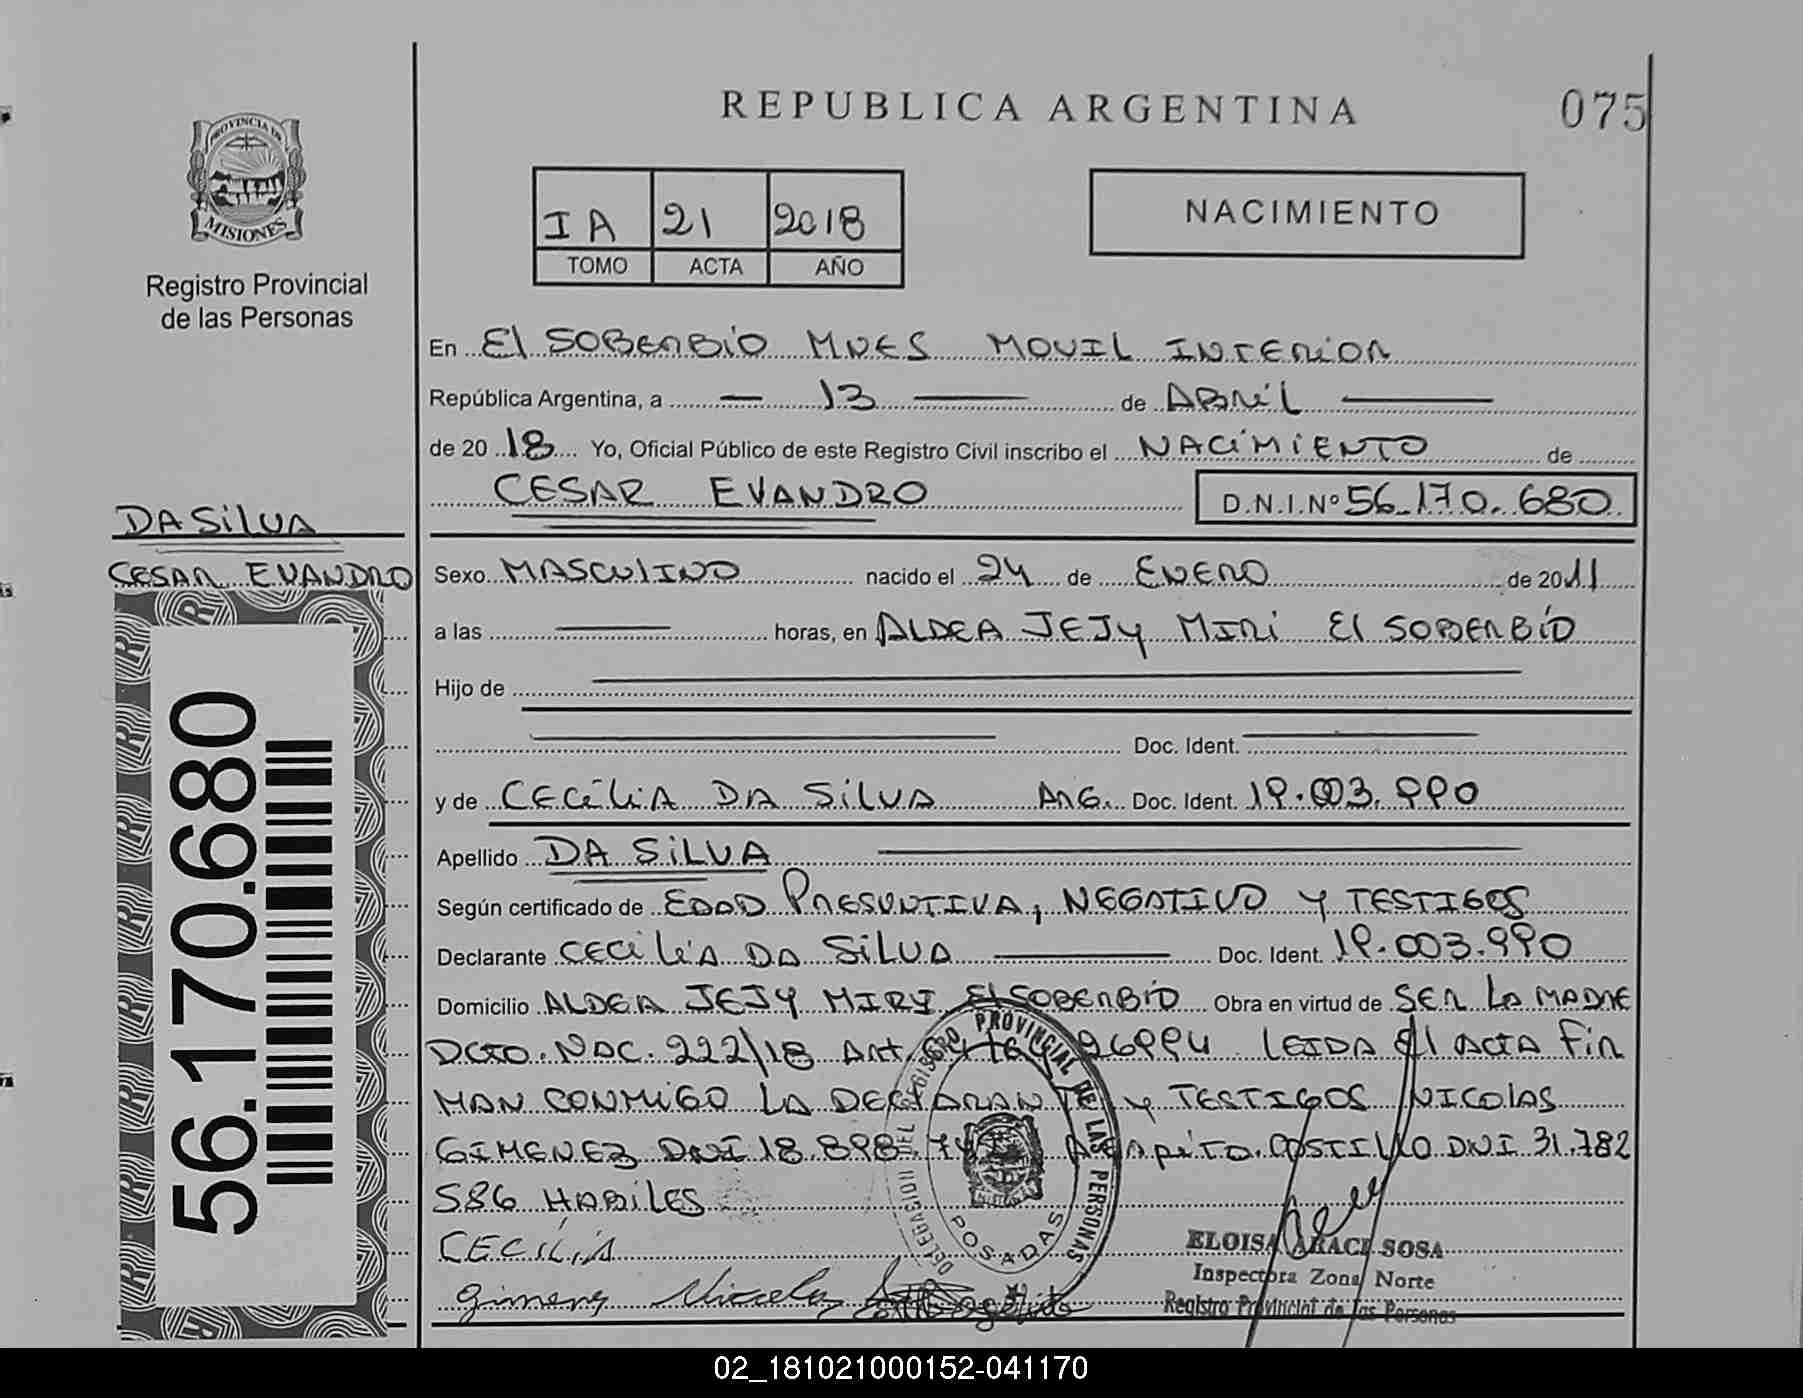 REPUBLICA ARGENTINA
075
PROVINCIA DE
MISIONES
Registro Provincial
de las Personas
IA 21 2018
TOMO ACTA AÑO
NACIMIENTO
En El SOBERBIO MNES MOVIL INTERIOR
República Argentina, a — 13 — de ABRIL —
de 20 18 Yo, Oficial Público de este Registro Civil inscribo el NACIMIENTO de
CESAR EVANDRO D.N.I.Nº 56.170.680
DA SILVA
CESAR EVANDRO
56.170.680
Sexo MASCULINO nacido el 24 de ENERO de 2011
a las — horas, en ALDEA JEJY MIRI El SOBERBIO
Hijo de
Doc. Ident.
y de CECILIA DA SILVA ARG. Doc. Ident. 19.003.990
Apellido DA SILVA
Según certificado de EDAD PRESUNTIVA, NEGATIVO Y TESTIGOS
Declarante CECILIA DA SILVA Doc. Ident. 19.003.990
Domicilio ALDEA JEJY MIRI El SOBERBIO Obra en virtud de SER LA MADRE
DCTO. NAC. 222/18 Art. 26994 LEIDA El ACTA FIR
MAN CONMIGO LA DECLARANTE Y TESTIGOS NICOLAS
GIMENEZ DNI 18.898. AGAPITO COSTILLO DNI 31.782
586 HABILES
CECILIA
Gimenez Nicolas
DELEGASION DEL REGISTRO PROVINCIAL DE LAS PERSONAS
POSADAS
ELOISA ARACI SOSA
Inspectora Zona Norte
Registro Provincial de las Personas
02_181021000152-041170